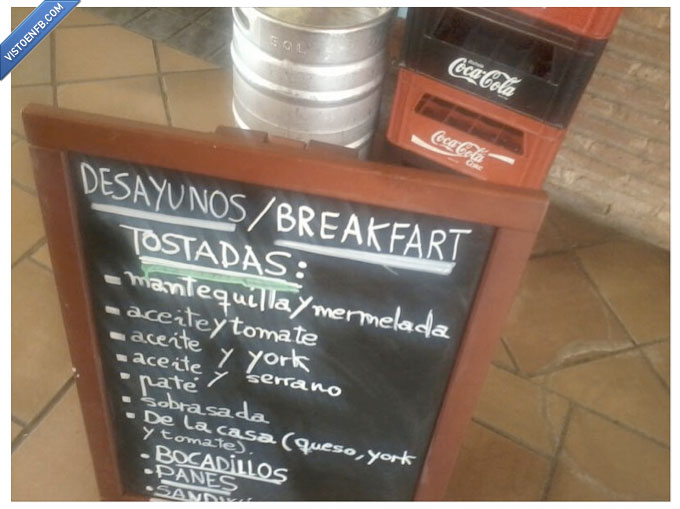 VISTOENFB.COM
Coca-Cola
Coca-Cola
DESAYUNOS/BREAKFART
TOSTADAS:
- mantequilla y mermelada
- aceite y tomate
- aceite y york
- aceite y serrano
- paté
- sobrasada
- De la casa (queso, york
y tomate).
- BOCADILLOS
- PANES